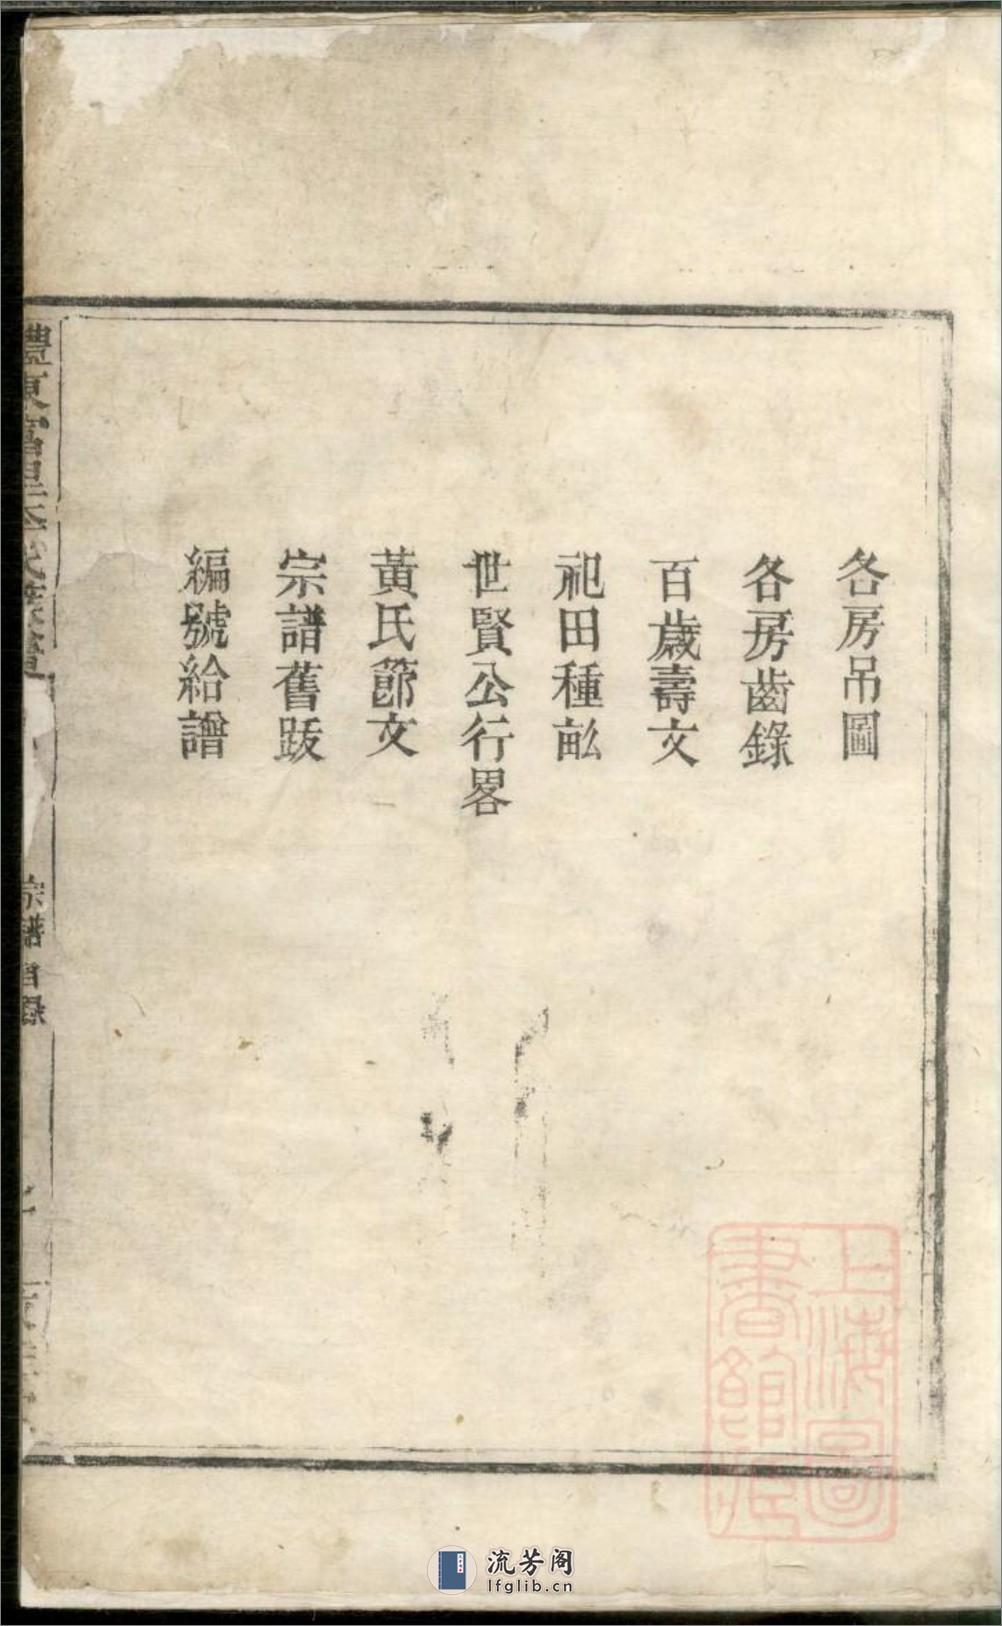 各房吊圖
各房齒錄
百歲壽文
祀田種畝
世賢公行畧
黃氏節文
宗譜舊跋
編號給譜
宗譜目錄
上海圖
書館藏
流芳阁
lfglib.cn